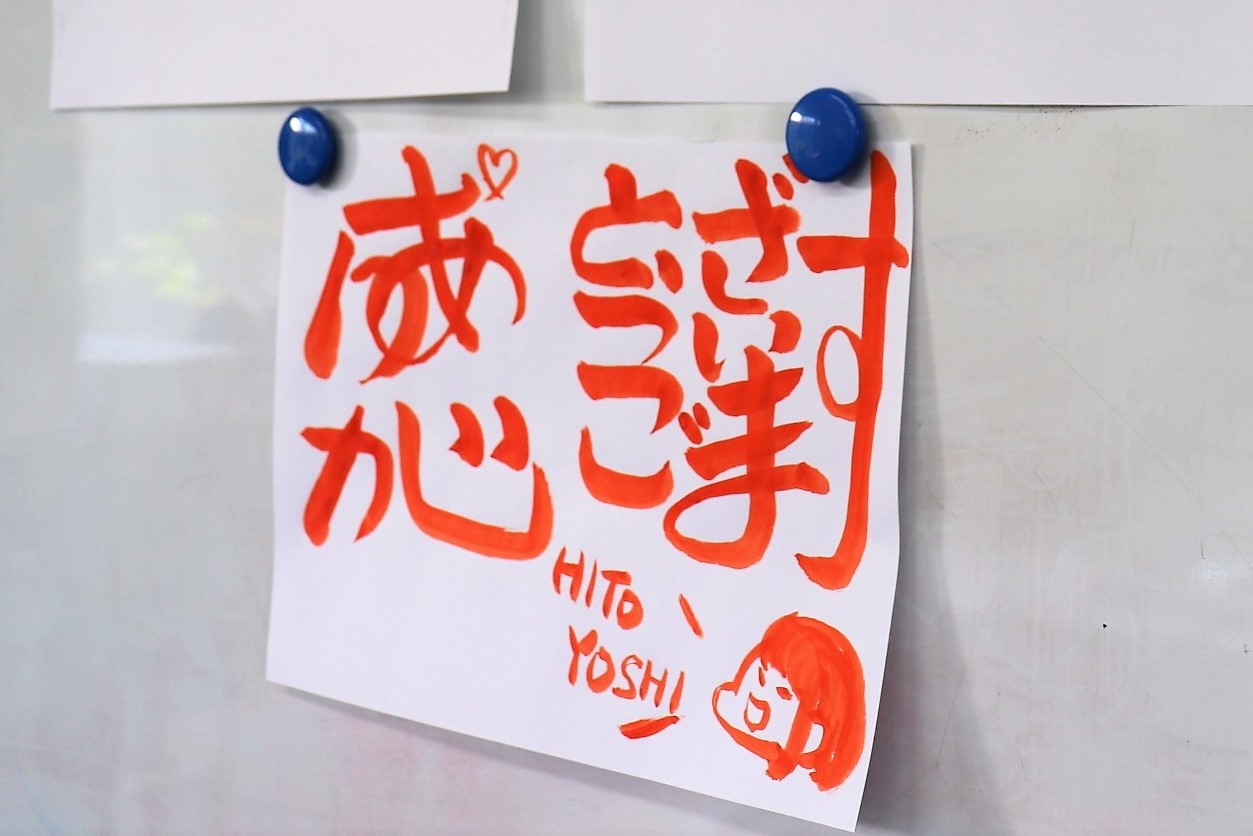 ありがとうございます
HITO
YOSHI